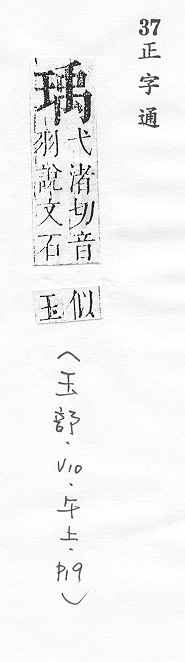 37
正字通
瑀
弋渚切音
羽說文石
似
玉
（玉部．V10．午上．P19）